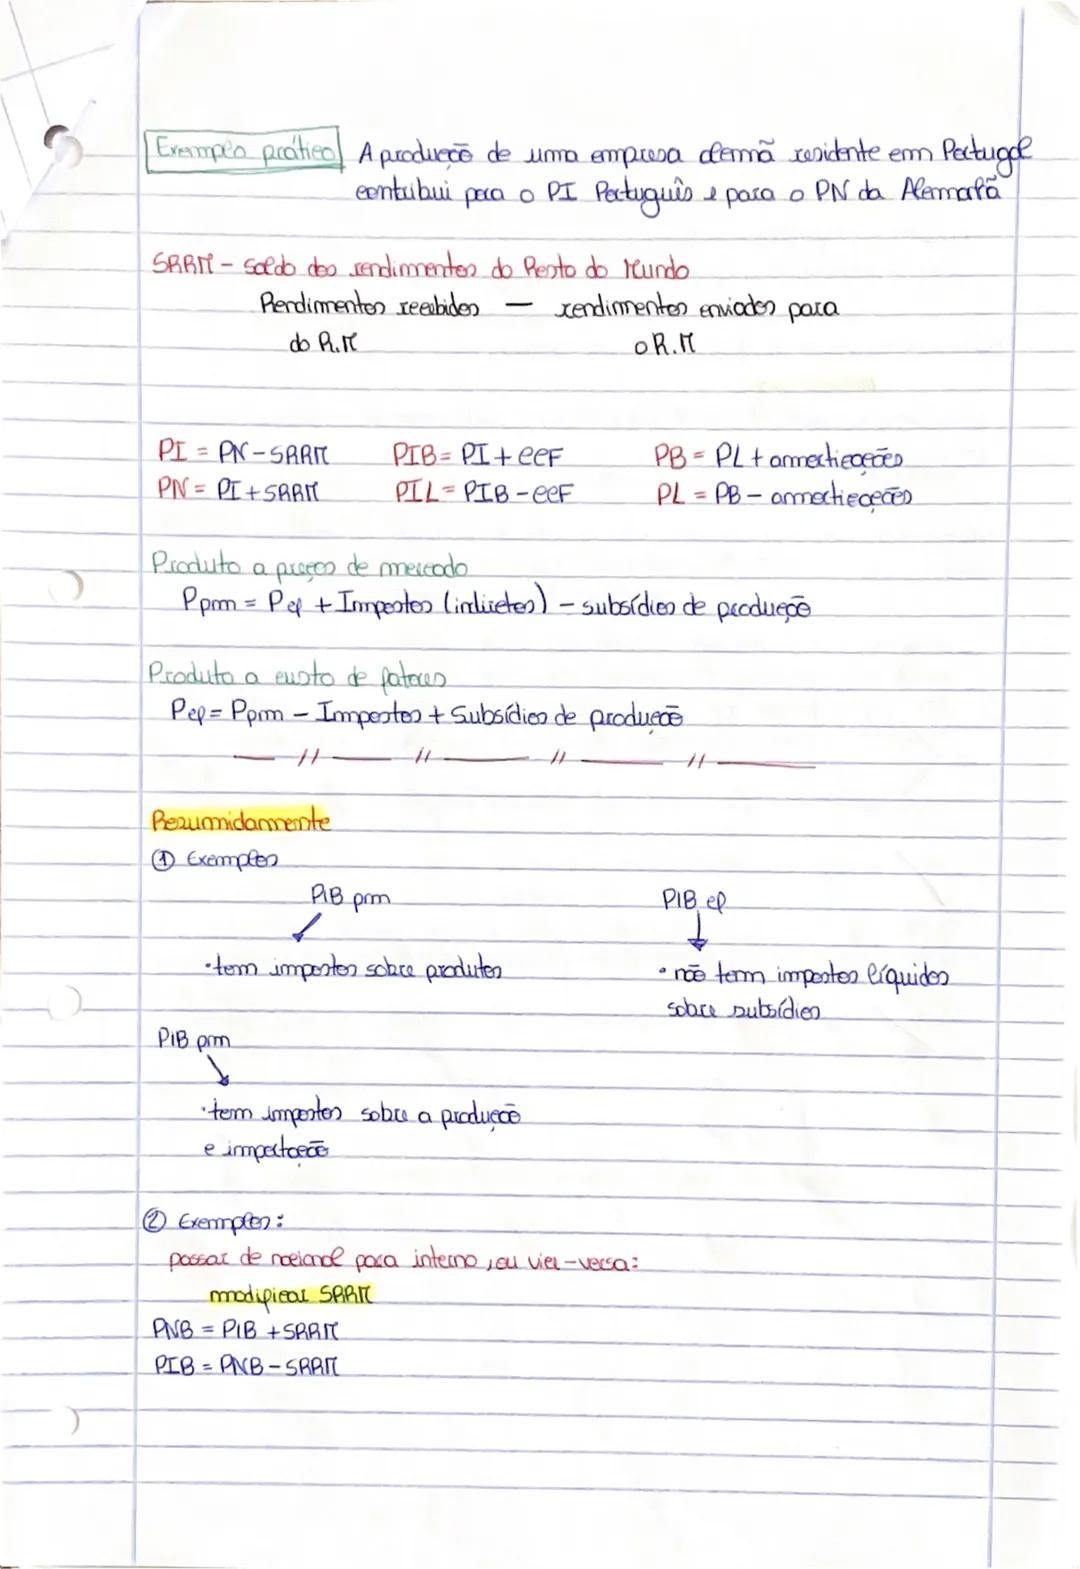 Exemplo prático A produção de uma empresa alemã residente em Portugal
contribui para o PI Português e para o PN da Alemanhã
SRRM - Saldo dos rendimentos do Resto do Mundo
Rendimentos recebidos — rendimentos enviados para
do R.M o R.M
PI = PN - SRRM PIB = PI + CCF PB = PL + amortizações
PN = PI + SRRM PIL = PIB - CCF PL = PB - amortizações
Produto a preços de mercado
Ppm = Pcf + Impostos (indiretos) - subsídios de produção
Produto a custo de fatores
Pcf = Ppm - Impostos + Subsídios de produção
— // — // — // — // —
Resumidamente
① Exemplos
PIB pm PIB cf
• tem impostos sobre produtos • não tem impostos líquidos
sobre subsídios
PIB pm
• tem impostos sobre a produção
e importação
② Exemplos:
passar de nacional para interno, ou vice-versa:
modificar SRRM
PNB = PIB + SRRM
PIB = PNB - SRRM